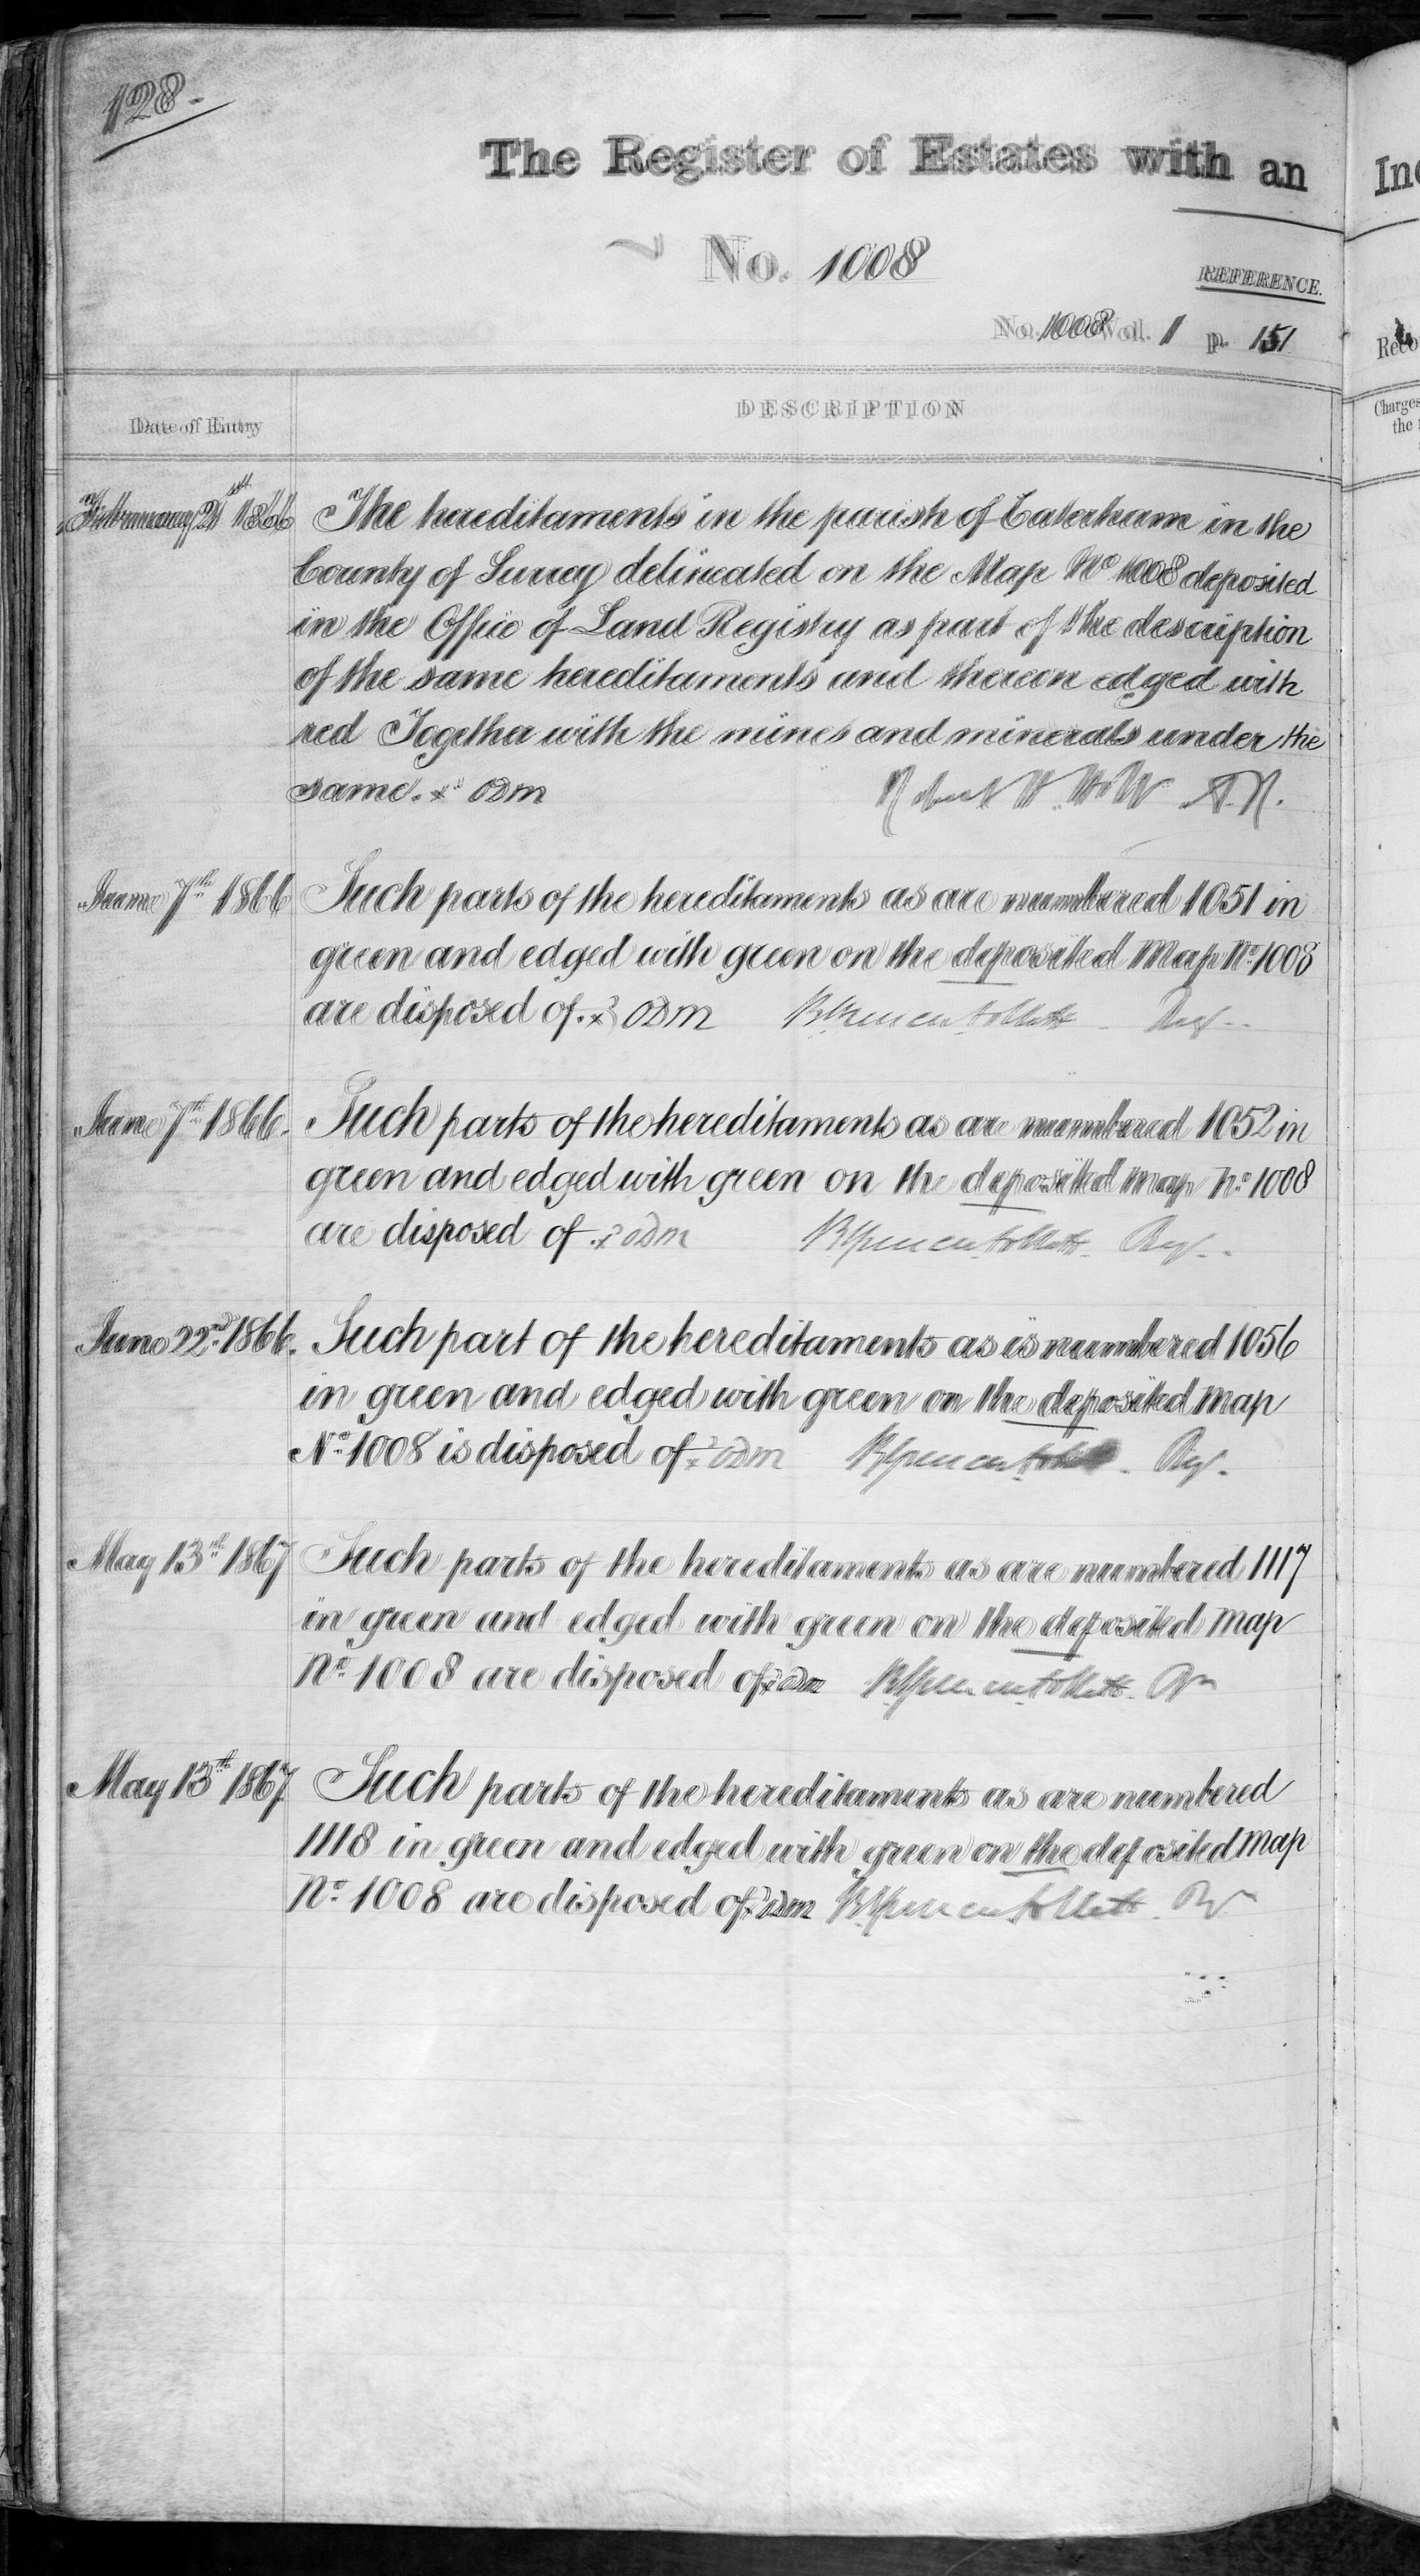 128.
The Register of Estates with an
No. 1008
REFERENCE.
No. 1008 Vol. 1 p. 151
Date of Entry
DESCRIPTION
February 21st 1866
The hereditaments in the parish of Caterham in the
County of Surrey delineated on the Map No 1008 deposited
in the Office of Land Registry as part of the description
of the same hereditaments and thereon edged with
red Together with the mines and minerals under the
same. x ODM
A.R.
June 7th 1866
Such parts of the hereditaments as are numbered 1051 in
green and edged with green on the deposited Map No 1008
are disposed of. x ODM Brent Spencer Follett Reg.
June 7th 1866.
Such parts of the hereditaments as are numbered 1052 in
green and edged with green on the deposited map No 1008
are disposed of x ODM B Spencer Follett Reg.
June 22nd 1866.
Such part of the hereditaments as is numbered 1056
in green and edged with green on the deposited map
No 1008 is disposed of x ODM B Spencer Follett Reg.
May 13th 1867
Such parts of the hereditaments as are numbered 1117
in green and edged with green on the deposited map
No 1008 are disposed of x ODM B Spencer Follett Rr
May 13th 1867
Such parts of the hereditaments as are numbered
1118 in green and edged with green on the deposited map
No 1008 are disposed of x ODM B Spencer Follett Rr
Charges
the